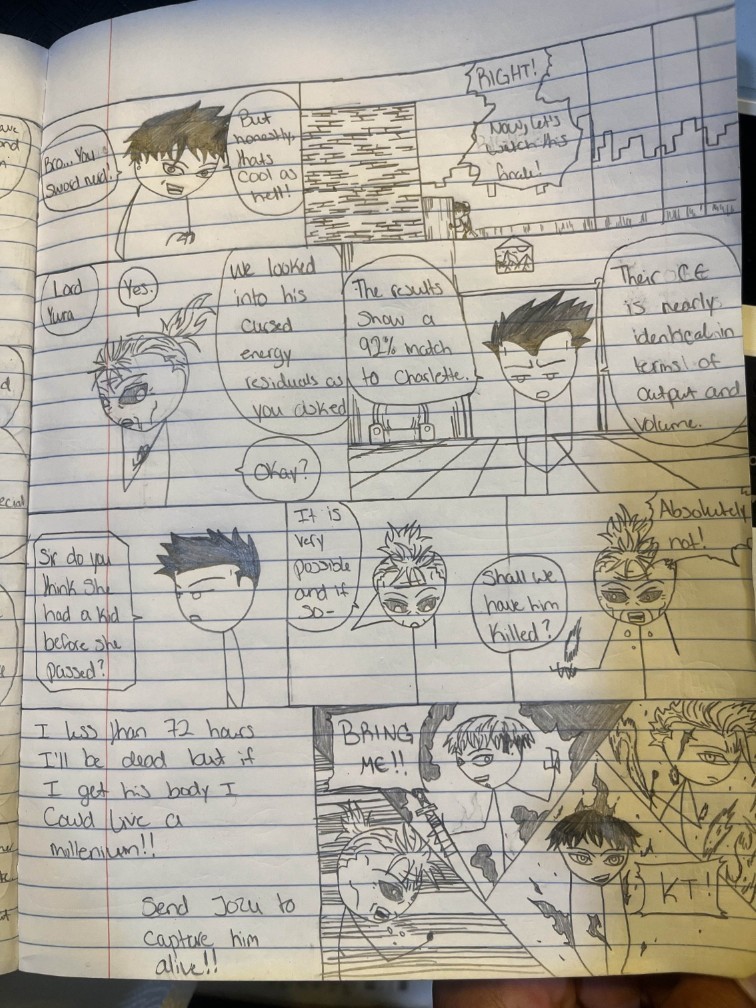 Braw You
sword nerd!
But
honestly,
thats
cool as
hell!
RIGHT!
Now, let's
watch this
Lord
Yura
Yes.
We looked
into his
cursed
energy
residuals as
you asked
Okay?
The results
Show a
92% match
to Charlette.
Their CE
is nearly
identical in
terms of
output and
volume.
Sir do you
think she
had a kid
before she
passed?
It is
very
possible
and if
so-
Shall we
have him
killed?
Absolutely
not!
I less than 72 hours
I'll be dead but if
I get his body I
Could live a
millenium!!
Send Jozu to
capture him
alive!!
BRING
ME!!
KT!